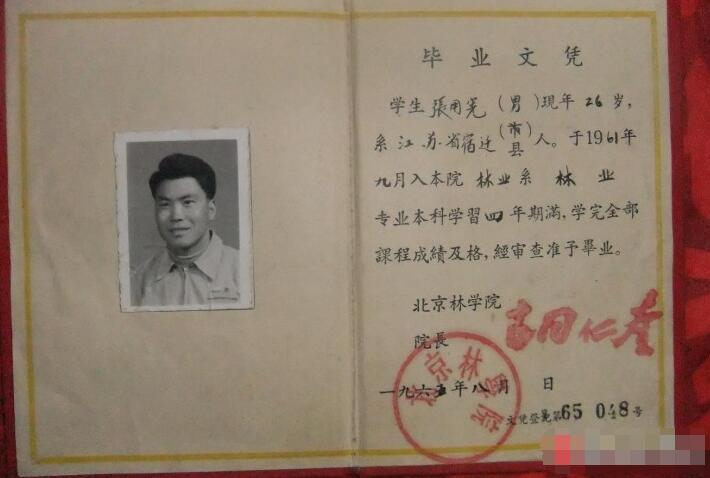 毕业文凭
学生張用宪(男)現年26岁,
系江苏省宿迁(市县)人。于1961年
九月入本院林业系林业
专业本科学習四年期滿,学完全部
課程成績及格,經审查准予畢业。
北京林学院
院長
北京林学院
一九六五年八月 日
文凭登记第65 048号